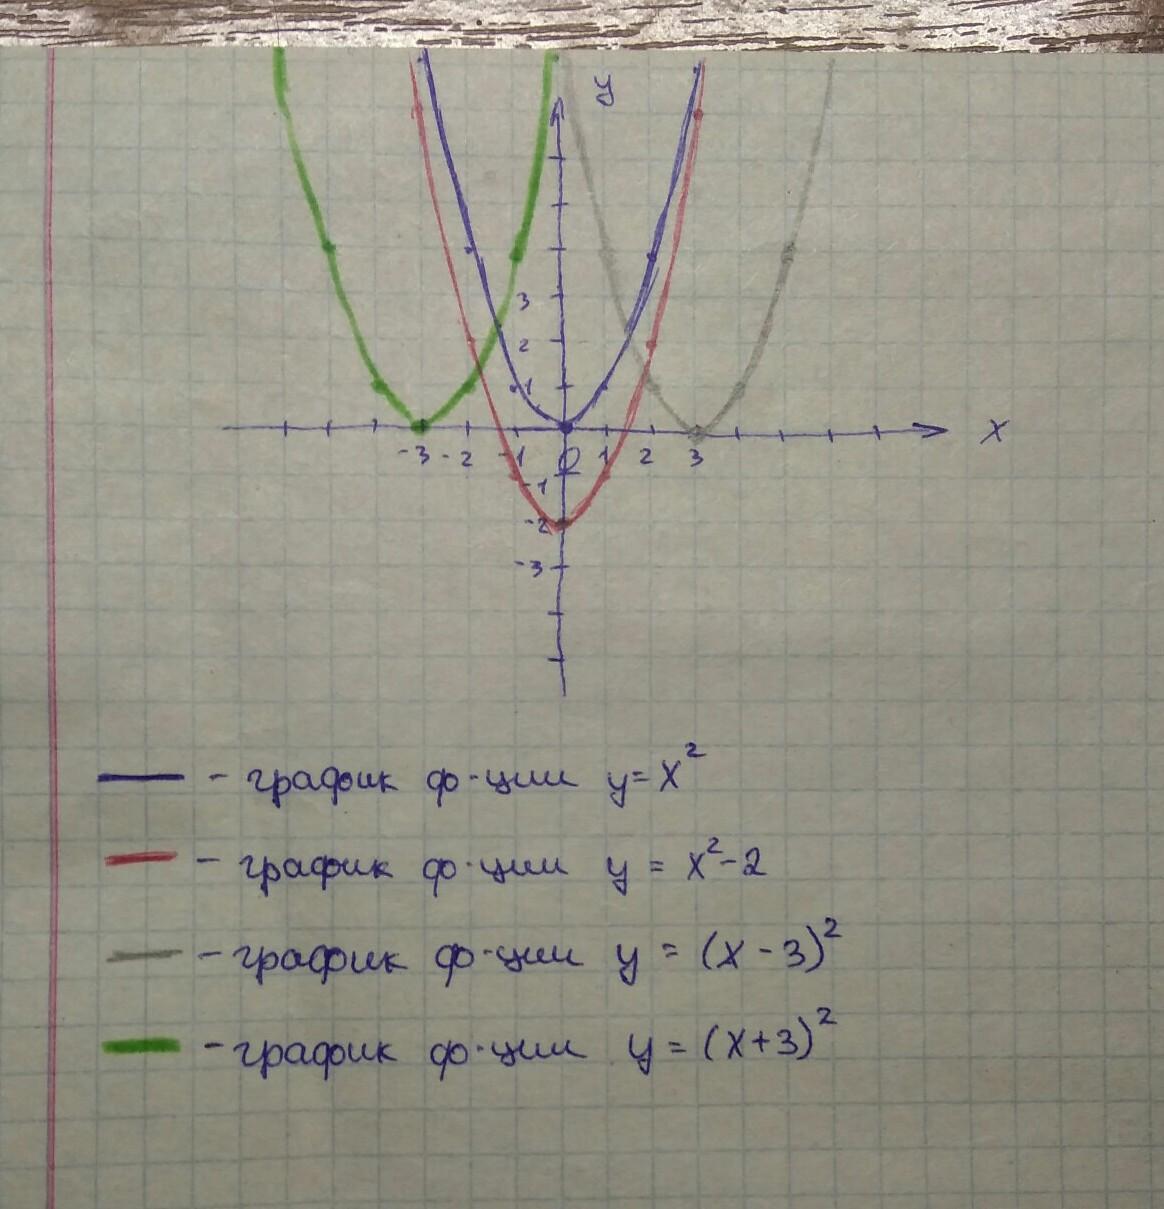 y
3
2
1
-3 -2 -1 0 1 2 3 x
-1
-2
-3
- график ф-ции y = x²
- график ф-ции y = x² - 2
- график ф-ции y = (x - 3)²
- график ф-ции y = (x + 3)²